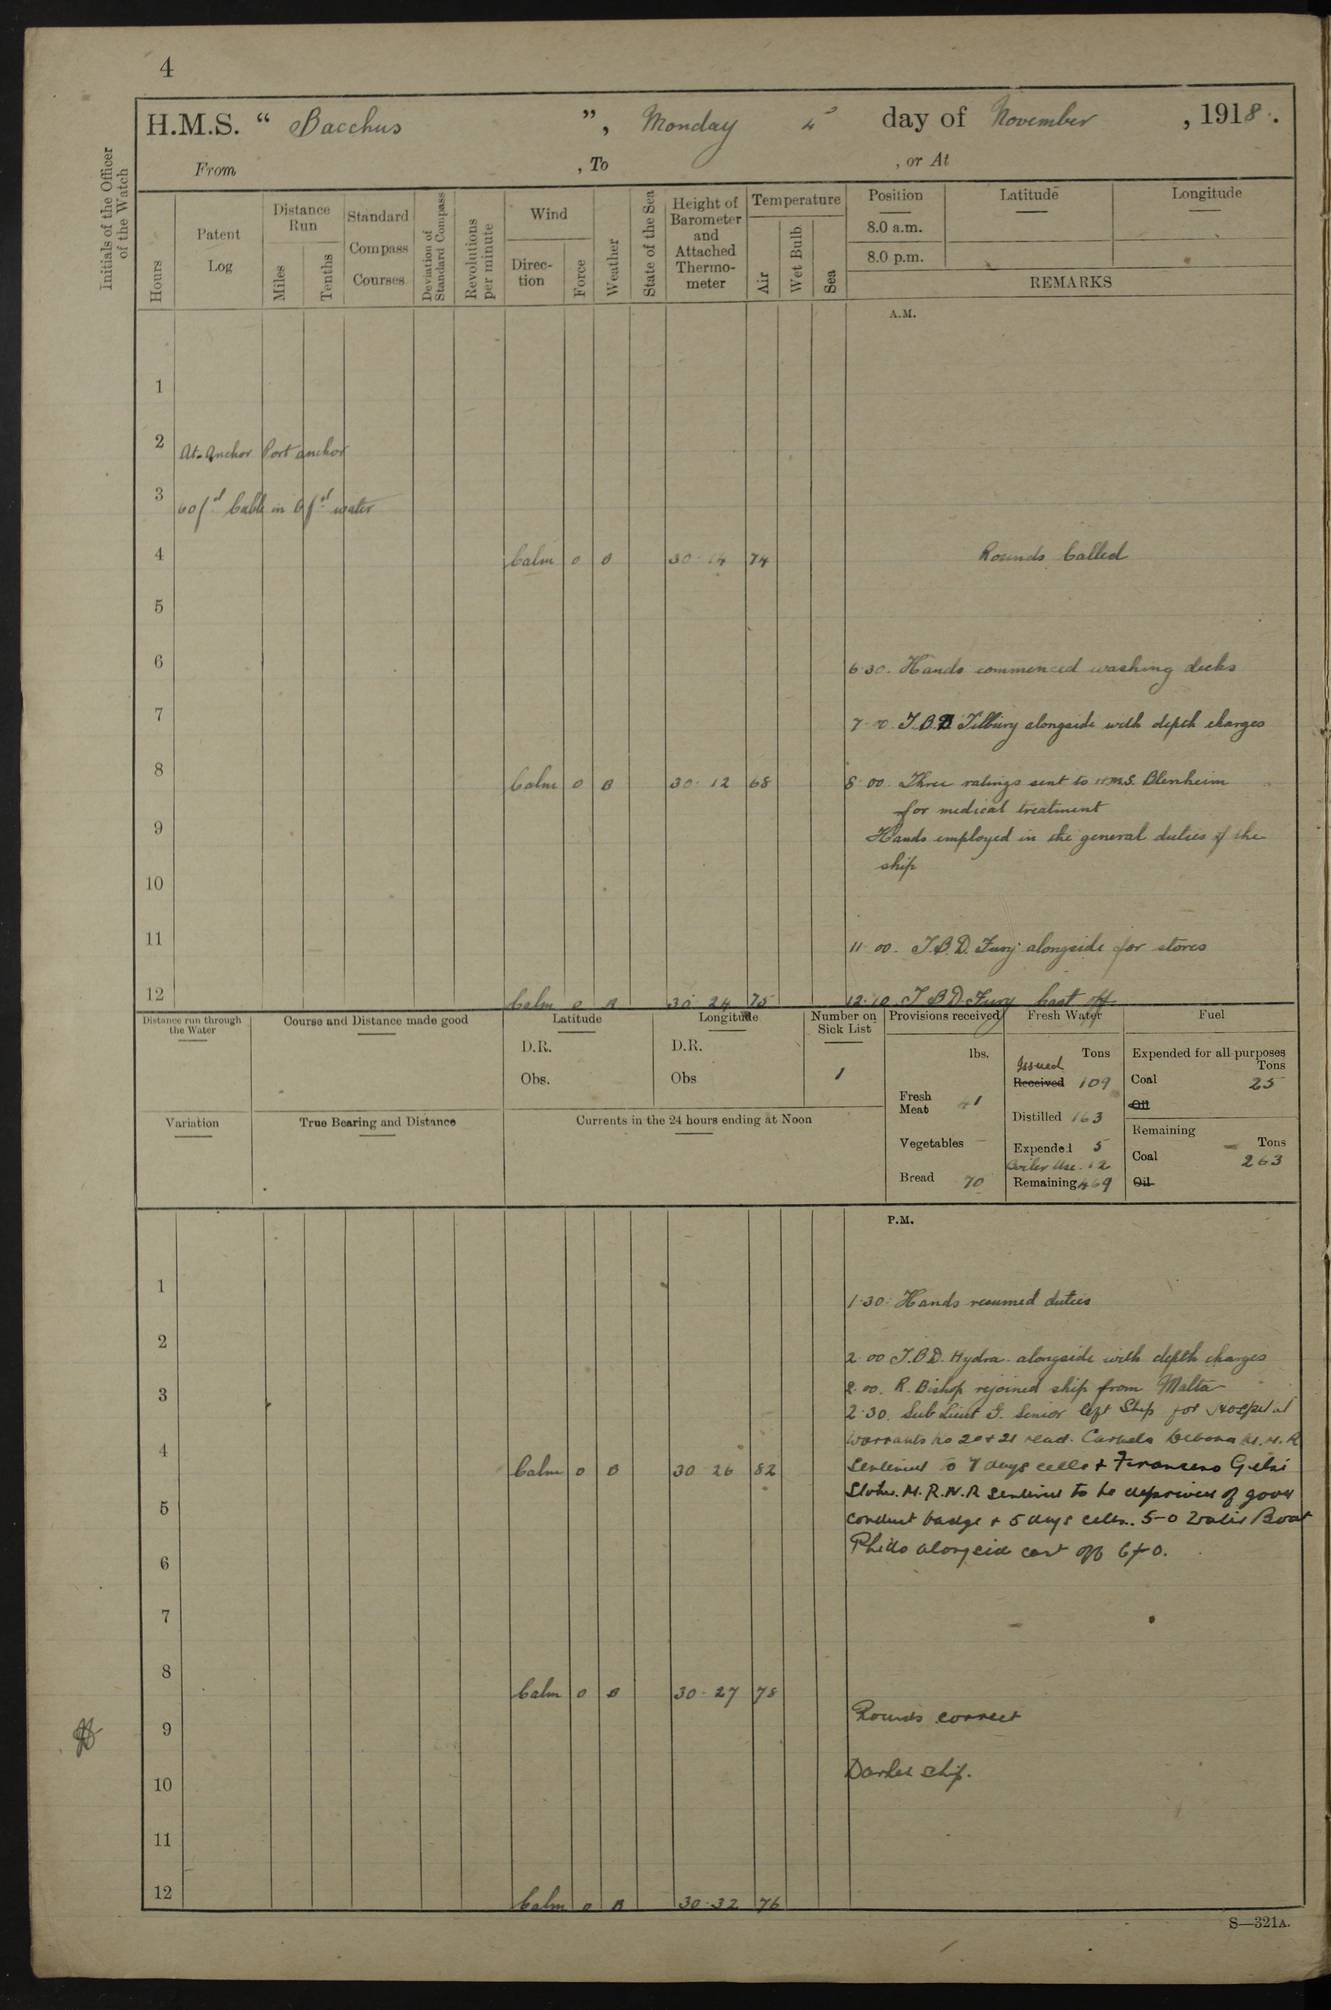 4
H.M.S. “ Bacchus ”, Monday 4 day of November , 1918.
From , To , or At
Initials of the Officer of the Watch
Hours
Patent Log
Distance Run
Miles
Tenths
Standard Compass Courses
Deviation of Standard Compass
Revolutions per minute
Wind
Direc-tion
Force
Weather
State of the Sea
Height of Barometer and Attached Thermo-meter
Temperature
Air
Wet Bulb
Sea
Position Latitude Longitude
8.0 a.m.
8.0 p.m.
REMARKS
A.M.
1
2 At Anchor Port anchor
3 60 fms Cable in 6 fms water
4 Calm 0 B 30 14 74 Rounds Called
5
6 6.30. Hands commenced washing decks
7 7.0 T.B.D Tilbury alongside with depth charges
8 Calm 0 B 30 12 68 8.00 Three ratings sent to H.M.S. Blenheim
for medical treatment
9 Hands employed in the general duties of the
ship
10
11 11 00. T.B.D. Fury alongside for stores
12 Calm 0 B 30 24 75 12.10 T B D Fury Cast off
Distance run through the Water
Course and Distance made good
Latitude
D.R.
Obs.
Longitude
D.R.
Obs
Number on Sick List
1
Provisions received
lbs.
Fresh Meat 41
Vegetables –
Bread 70
Fresh Water
Tons
Issued
Received 109
Distilled 163
Expended 5
Boiler Use. 12
Remaining 469
Fuel
Expended for all purposes
Tons
Coal 25
Oil
Remaining
Tons
Coal 263
Oil
Variation
True Bearing and Distance
Currents in the 24 hours ending at Noon
P.M.
1 1.30. Hands resumed duties
2 2.00 T.B.D. Hydra alongside with depth charges
3 2.00. R. Bishop rejoined ship from Malta
2.30. Sub Lieut G. Senior left Ship for Hospital
4 Warrants No 20 & 21 read. Carmelo
Calm 0 B 30 26 82 Sentenced to 7 days cells & Francesco
5 M.R.N.R sentenced to be deprived of good
conduct badge & 5 days cells. 5-0 Water Boat
6 alongside cast off 6.40.
7
8 Calm 0 B 30.27 78
9 Rounds correct
10 Darken ship.
11
12 Calm 0 B 30.32 76
S—321A.